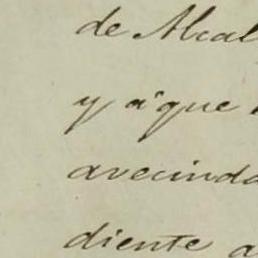 de Alcal
y á que
avecinda
diente a